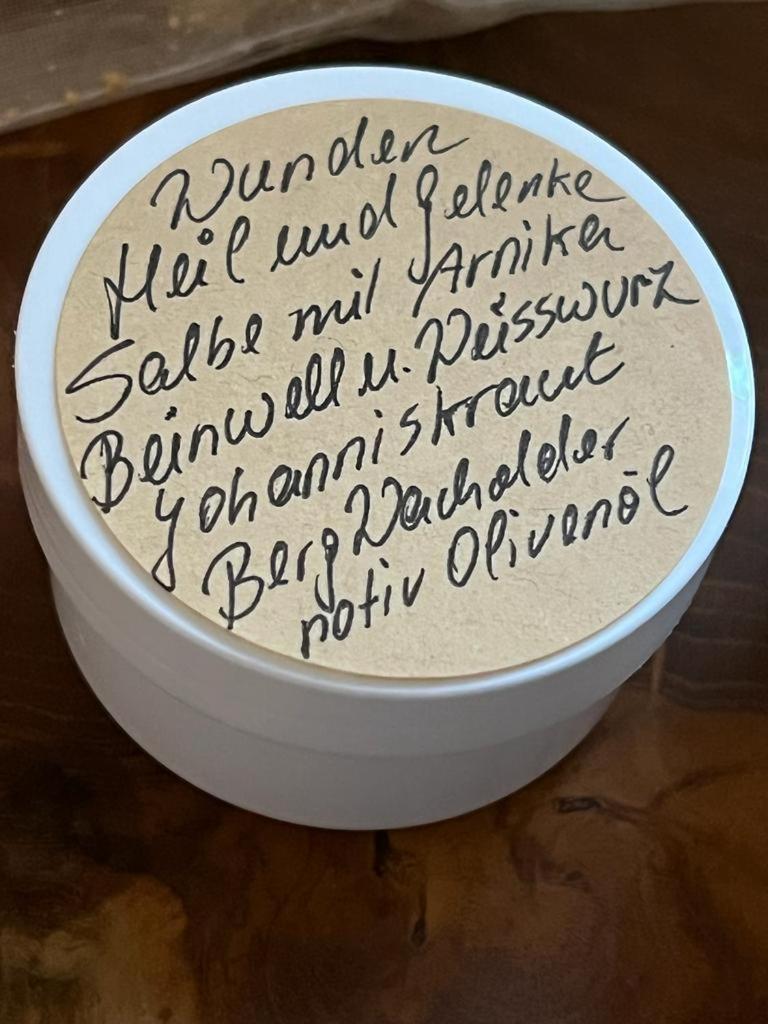 Wunden
Heil und Gelenke
Salbe mit Arnika
Beinwell u. Weisswurz
Johanniskraut
Berg Wacholder
nativ Olivenöl